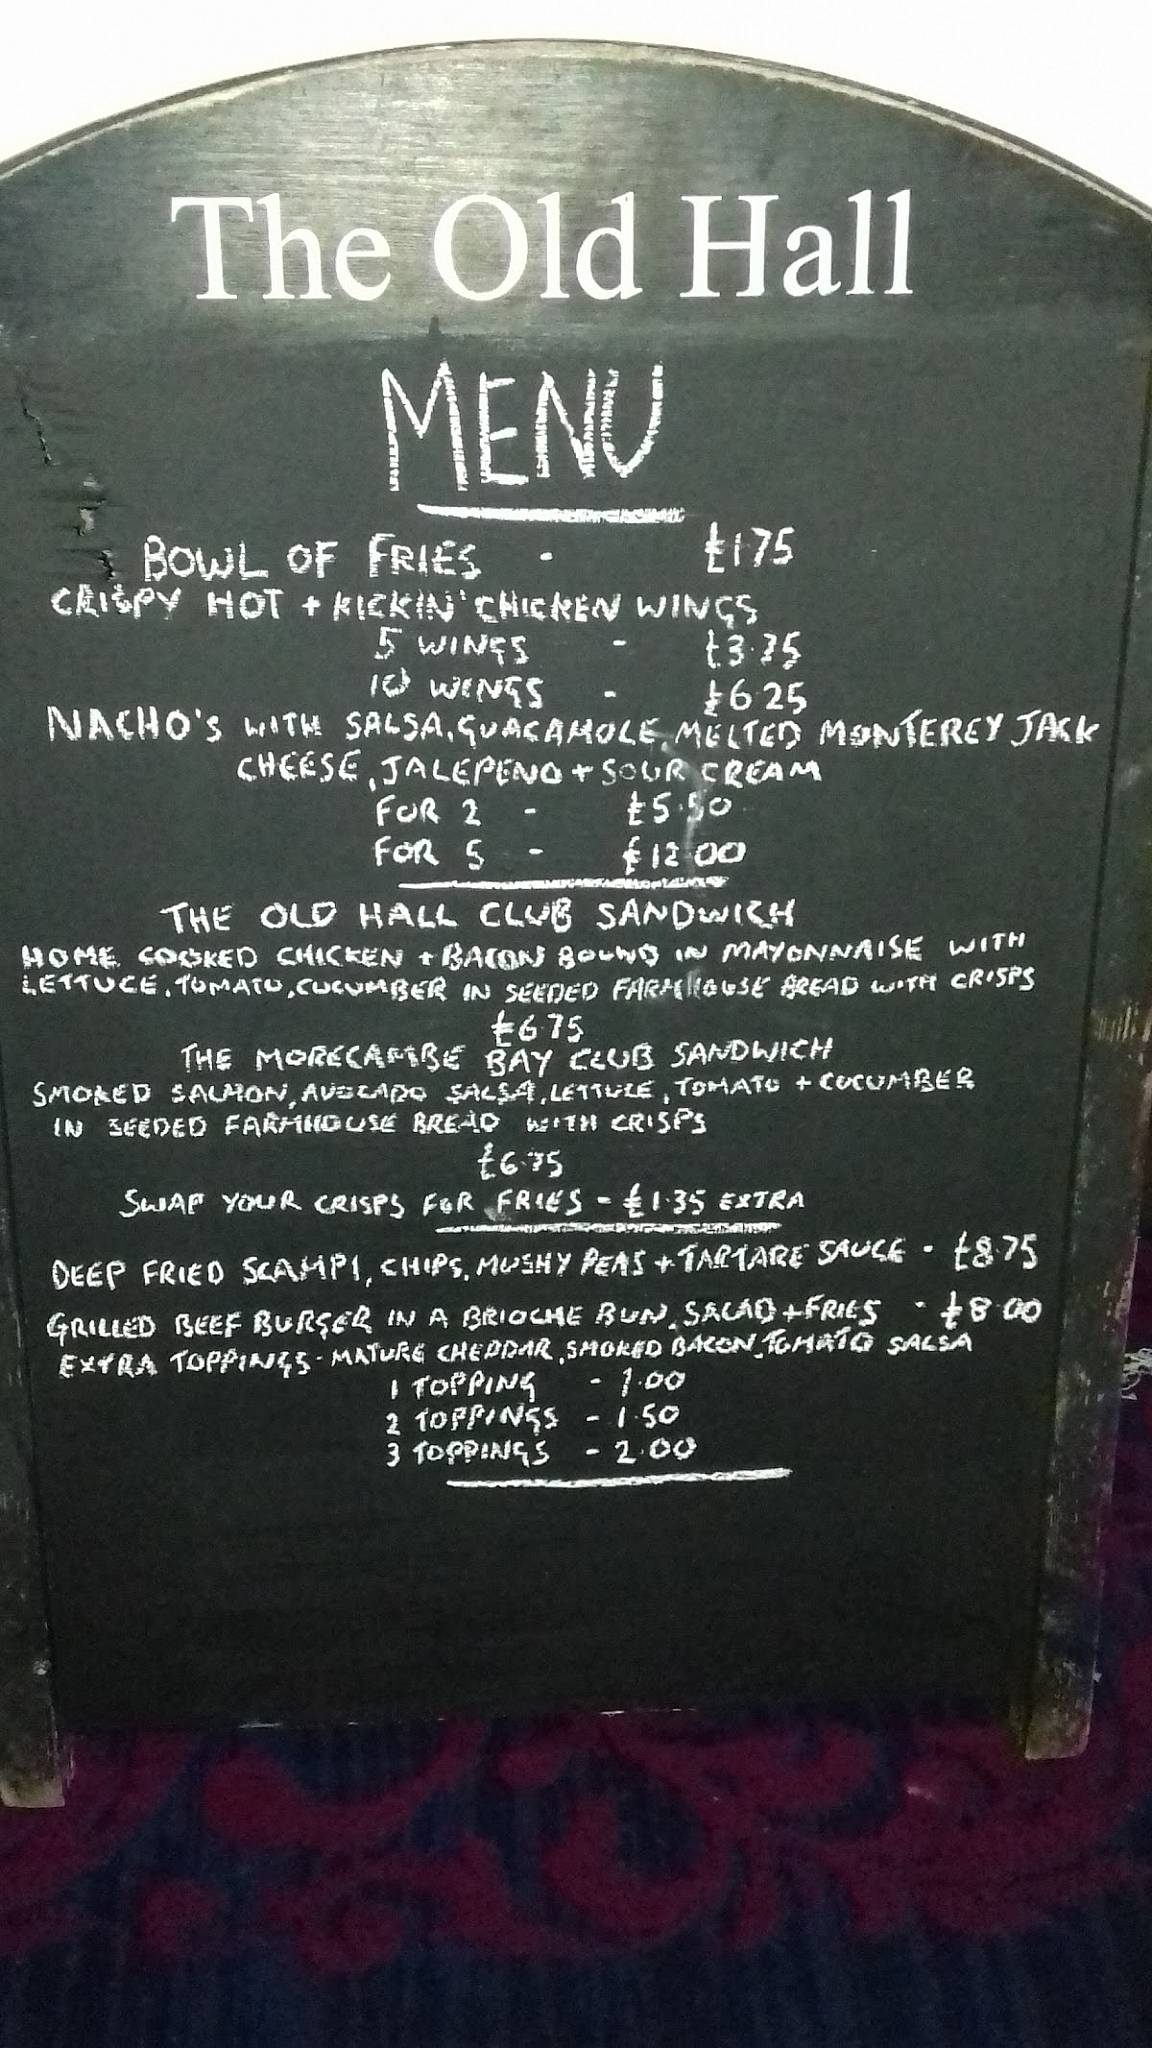 The Old Hall
MENU
BOWL OF FRIES - £1.75
CRISPY HOT + KICKIN' CHICKEN WINGS
5 WINGS - £3.75
10 WINGS - £6.25
NACHO'S WITH SALSA, GUACAMOLE, MELTED MONTEREY JACK
CHEESE, JALEPENO + SOUR CREAM
FOR 2 - £5.50
FOR 5 - £12.00
THE OLD HALL CLUB SANDWICH
HOME COOKED CHICKEN + BACON BOUND IN MAYONNAISE WITH
LETTUCE, TOMATO, CUCUMBER IN SEEDED FARMHOUSE BREAD WITH CRISPS
£6.75
THE MORECAMBE BAY CLUB SANDWICH
SMOKED SALMON, AVOCADO SALSA, LETTUCE, TOMATO + CUCUMBER
IN SEEDED FARMHOUSE BREAD WITH CRISPS
£6.75
SWAP YOUR CRISPS FOR FRIES - £1.35 EXTRA
DEEP FRIED SCAMPI, CHIPS, MUSHY PEAS + TARTARE SAUCE - £8.75
GRILLED BEEF BURGER IN A BRIOCHE BUN, SALAD + FRIES - £8.00
EXTRA TOPPINGS - MATURE CHEDDAR, SMOKED BACON, TOMATO SALSA
1 TOPPING - 1.00
2 TOPPINGS - 1.50
3 TOPPINGS - 2.00